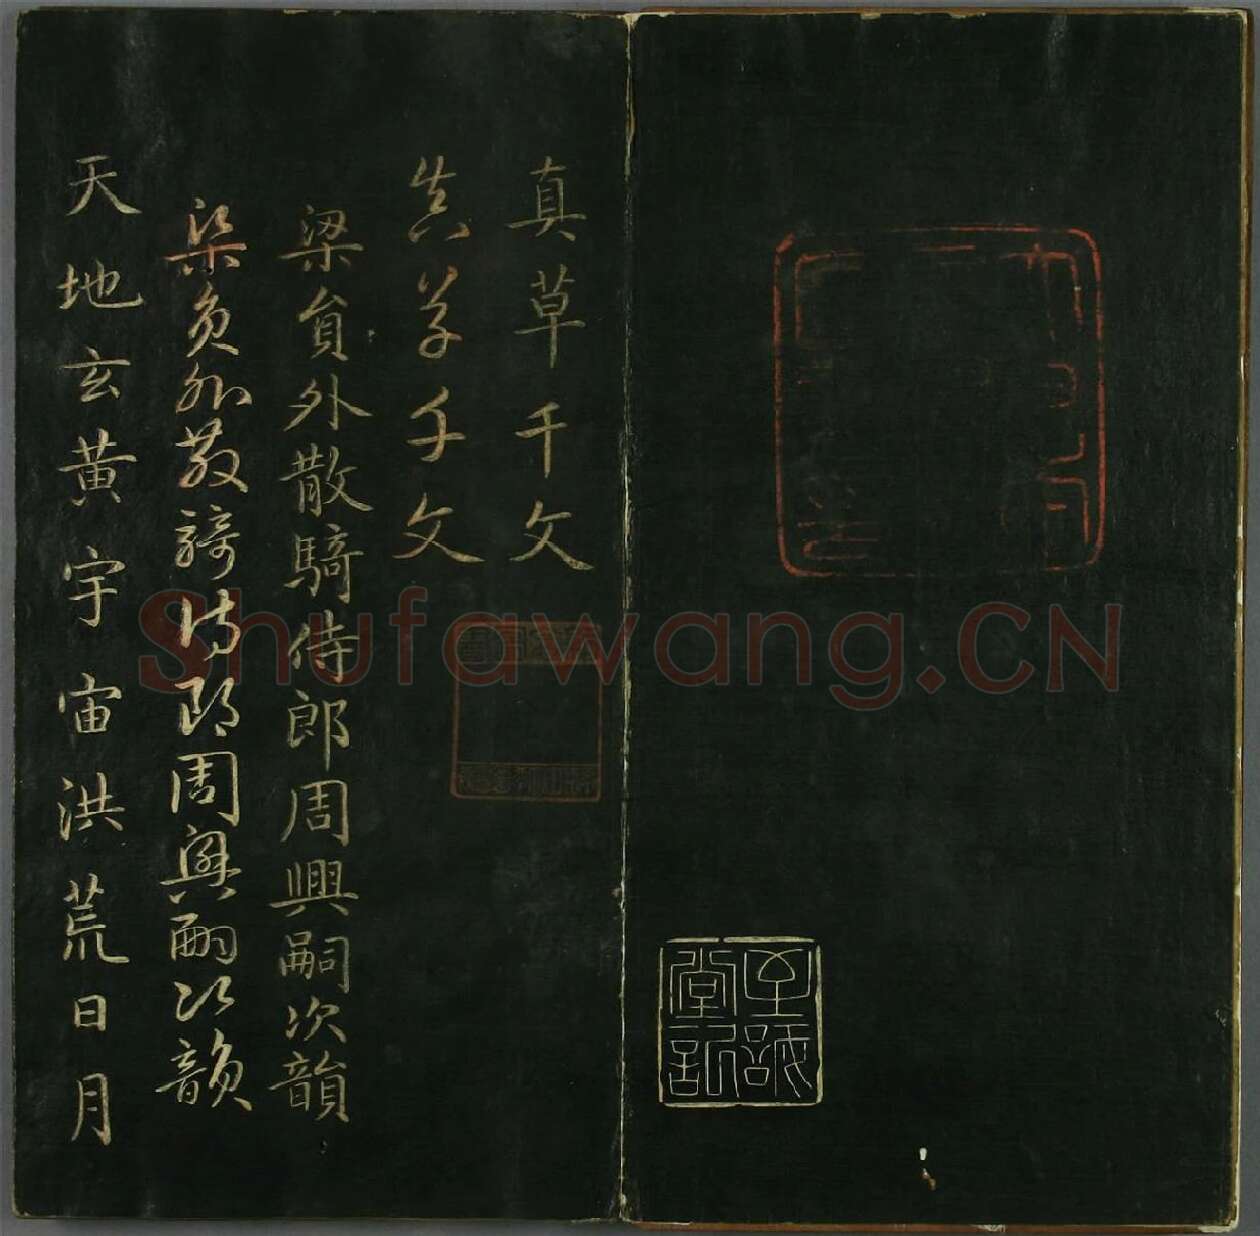 真草千文
真草千文
梁貟外散騎侍郎周興嗣次韻
梁貟外散騎侍郎周興嗣次韻
天地玄黃宇宙洪荒日月
Shufawang.CN